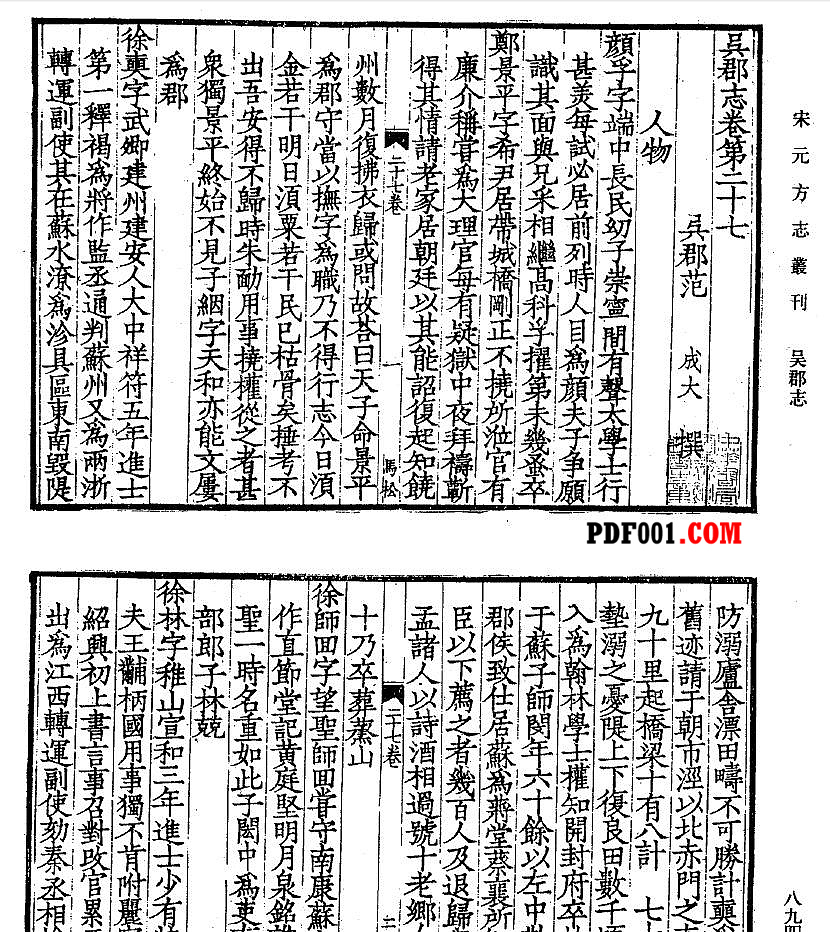 宋元方志叢刊 吴郡志
吳郡志卷第二十七
吳郡范 成大 撰
人物
顔孚字端中長民幼子崇寧間有聲太學士行
甚羙每試必居前列時人目為顔夫子争願
識其面與兄采相繼髙科孚擢第未幾蚤卒
鄭景平字希尹居帶城橋剛正不撓所涖官有
廉介稱甞爲大理官每有疑獄中夜拜禱蘄
得其情請老家居朝廷以其能詔復起知饒
二十七卷 一 馬松
州數月復拂衣歸或問故荅曰天子命景平
為郡守當以撫字爲職乃不得行志今日湏
金若干明日湏粟若干民已枯骨矣捶考不
出吾安得不歸時朱勔用事撓權從之者甚
衆獨景平終始不見子絪字天和亦能文屢
爲郡
徐奭字武卿建州建安人大中祥符五年進士
第一釋褐爲將作監丞通判蘇州又爲兩浙
轉運副使其在蘇水潦爲沴具區東南毀隄
PDF001.COM
防溺廬舍漂田疇不可勝計奭
舊迹請于朝市涇以北赤門之
九十里起橋梁十有八計 七
墊溺之憂隄上下復良田數千
入為翰林學士權知開封府卒
于蘇子師閔年六十餘以左中
郡侯致仕居蘇爲蔣堂蔡襄所
臣以下薦之者幾百人及退歸
孟諸人以詩酒相過號十老鄉
二十七卷 二
十乃卒葬蒸山
徐師回字望聖師回甞守南康蘇
作直節堂記黄庭堅明月泉銘
聖一時名重如此子閎中爲吏
部郎子林兢
徐林字稚山宣和三年進士少有
夫王黼柄國用事獨不肯附麗
紹興初上書言事召對改官累
出爲江西轉運副使劾秦丞相
八九四